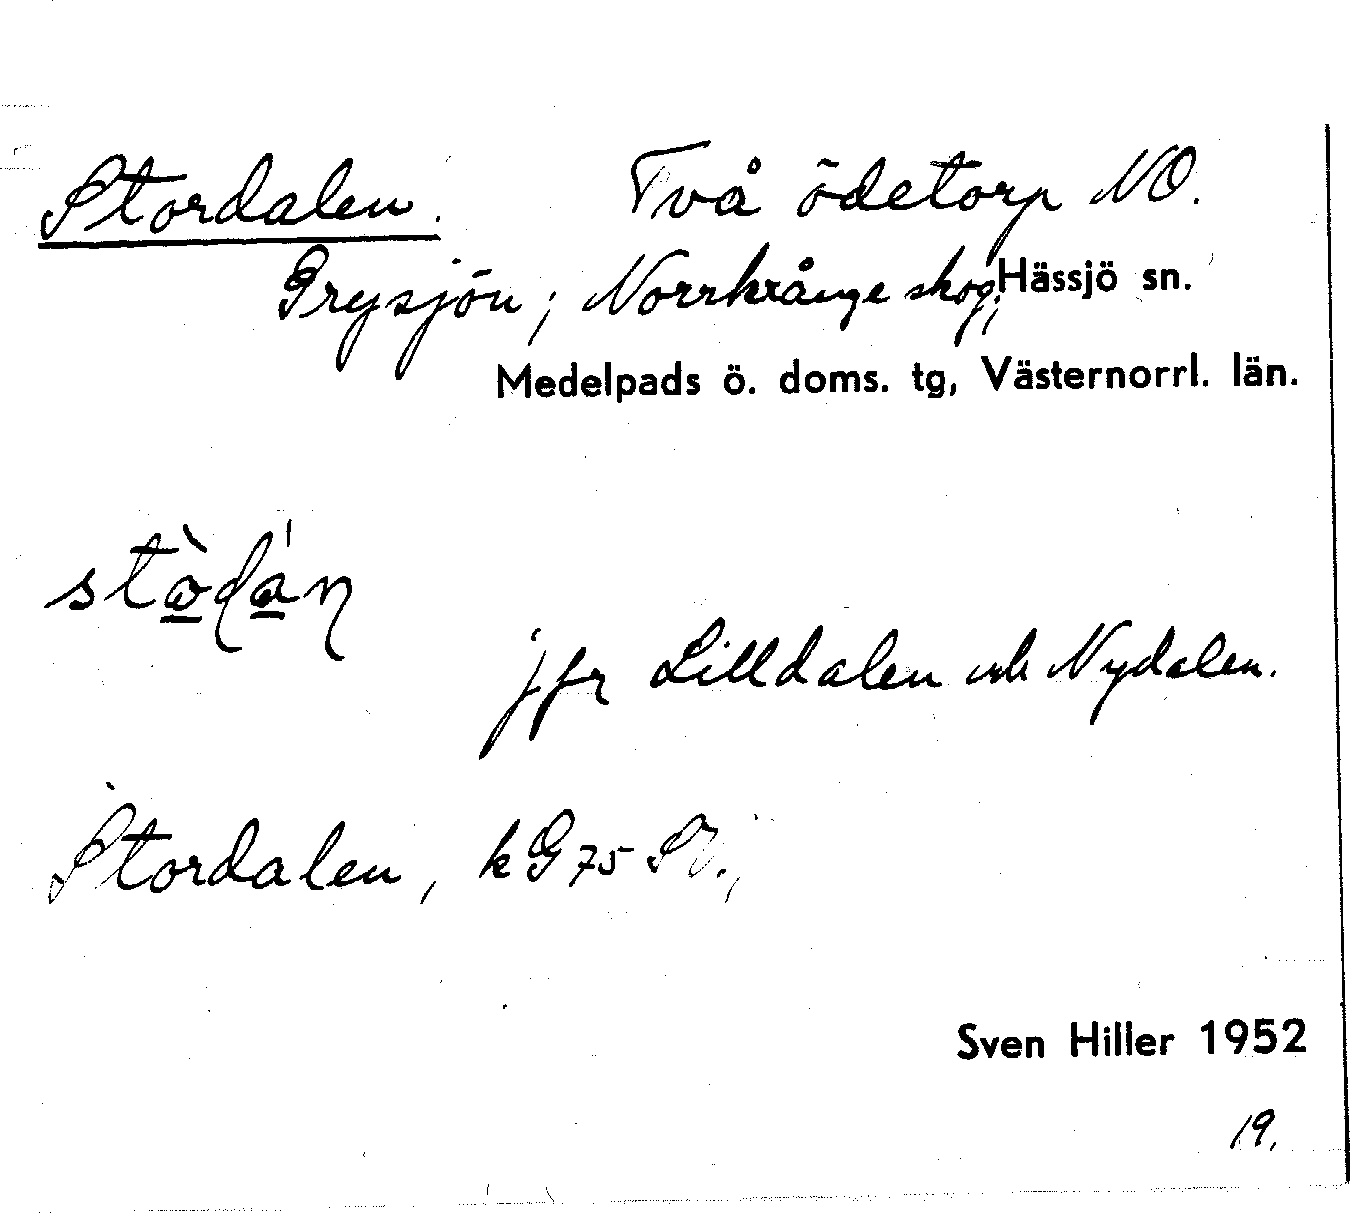 Stordalen. Två ödetorp NO.
Grysjön; Norrkrånge skog, Hässjö sn.
Medelpads ö. doms. tg, Västernorrl. län.
jfr Lilldalen och Nydalen.
Stordalen, kG 75 SV.,
Sven Hiller 1952
19.